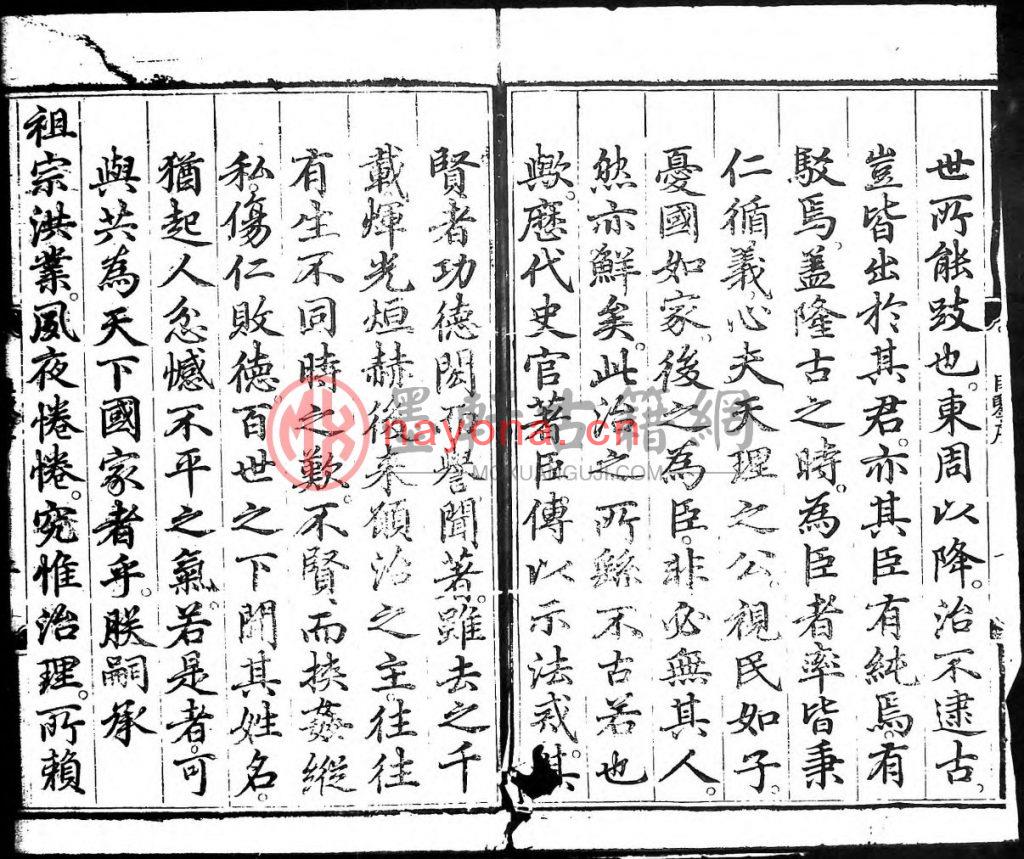 世所能跂也。東周以降。治不逮古。
豈皆出於其君。亦其臣有純焉。有
駁焉。盖隆古之時。為臣者率皆秉
仁循義。心夫天理之公。視民如子。
憂國如家。後之為臣。非必無其人。
然亦鮮矣。此治之所繇不古若也
歟。歷代史官著臣傳以示法戒。其
賢者功德閎
譽聞著。雖去之千
載輝光烜赫。後來願治之主往往
有生不同時之歎。不賢而挾姦縱
私。傷仁敗德。百世之下聞其姓名。
猶起人忿憾不平之氣。若是者。可
與共為天下國家者乎。朕嗣承
祖宗洪業。夙夜惓惓。究惟治理。所賴
墨軒古籍網
nayona.cn
MOXUANGUJI.COM